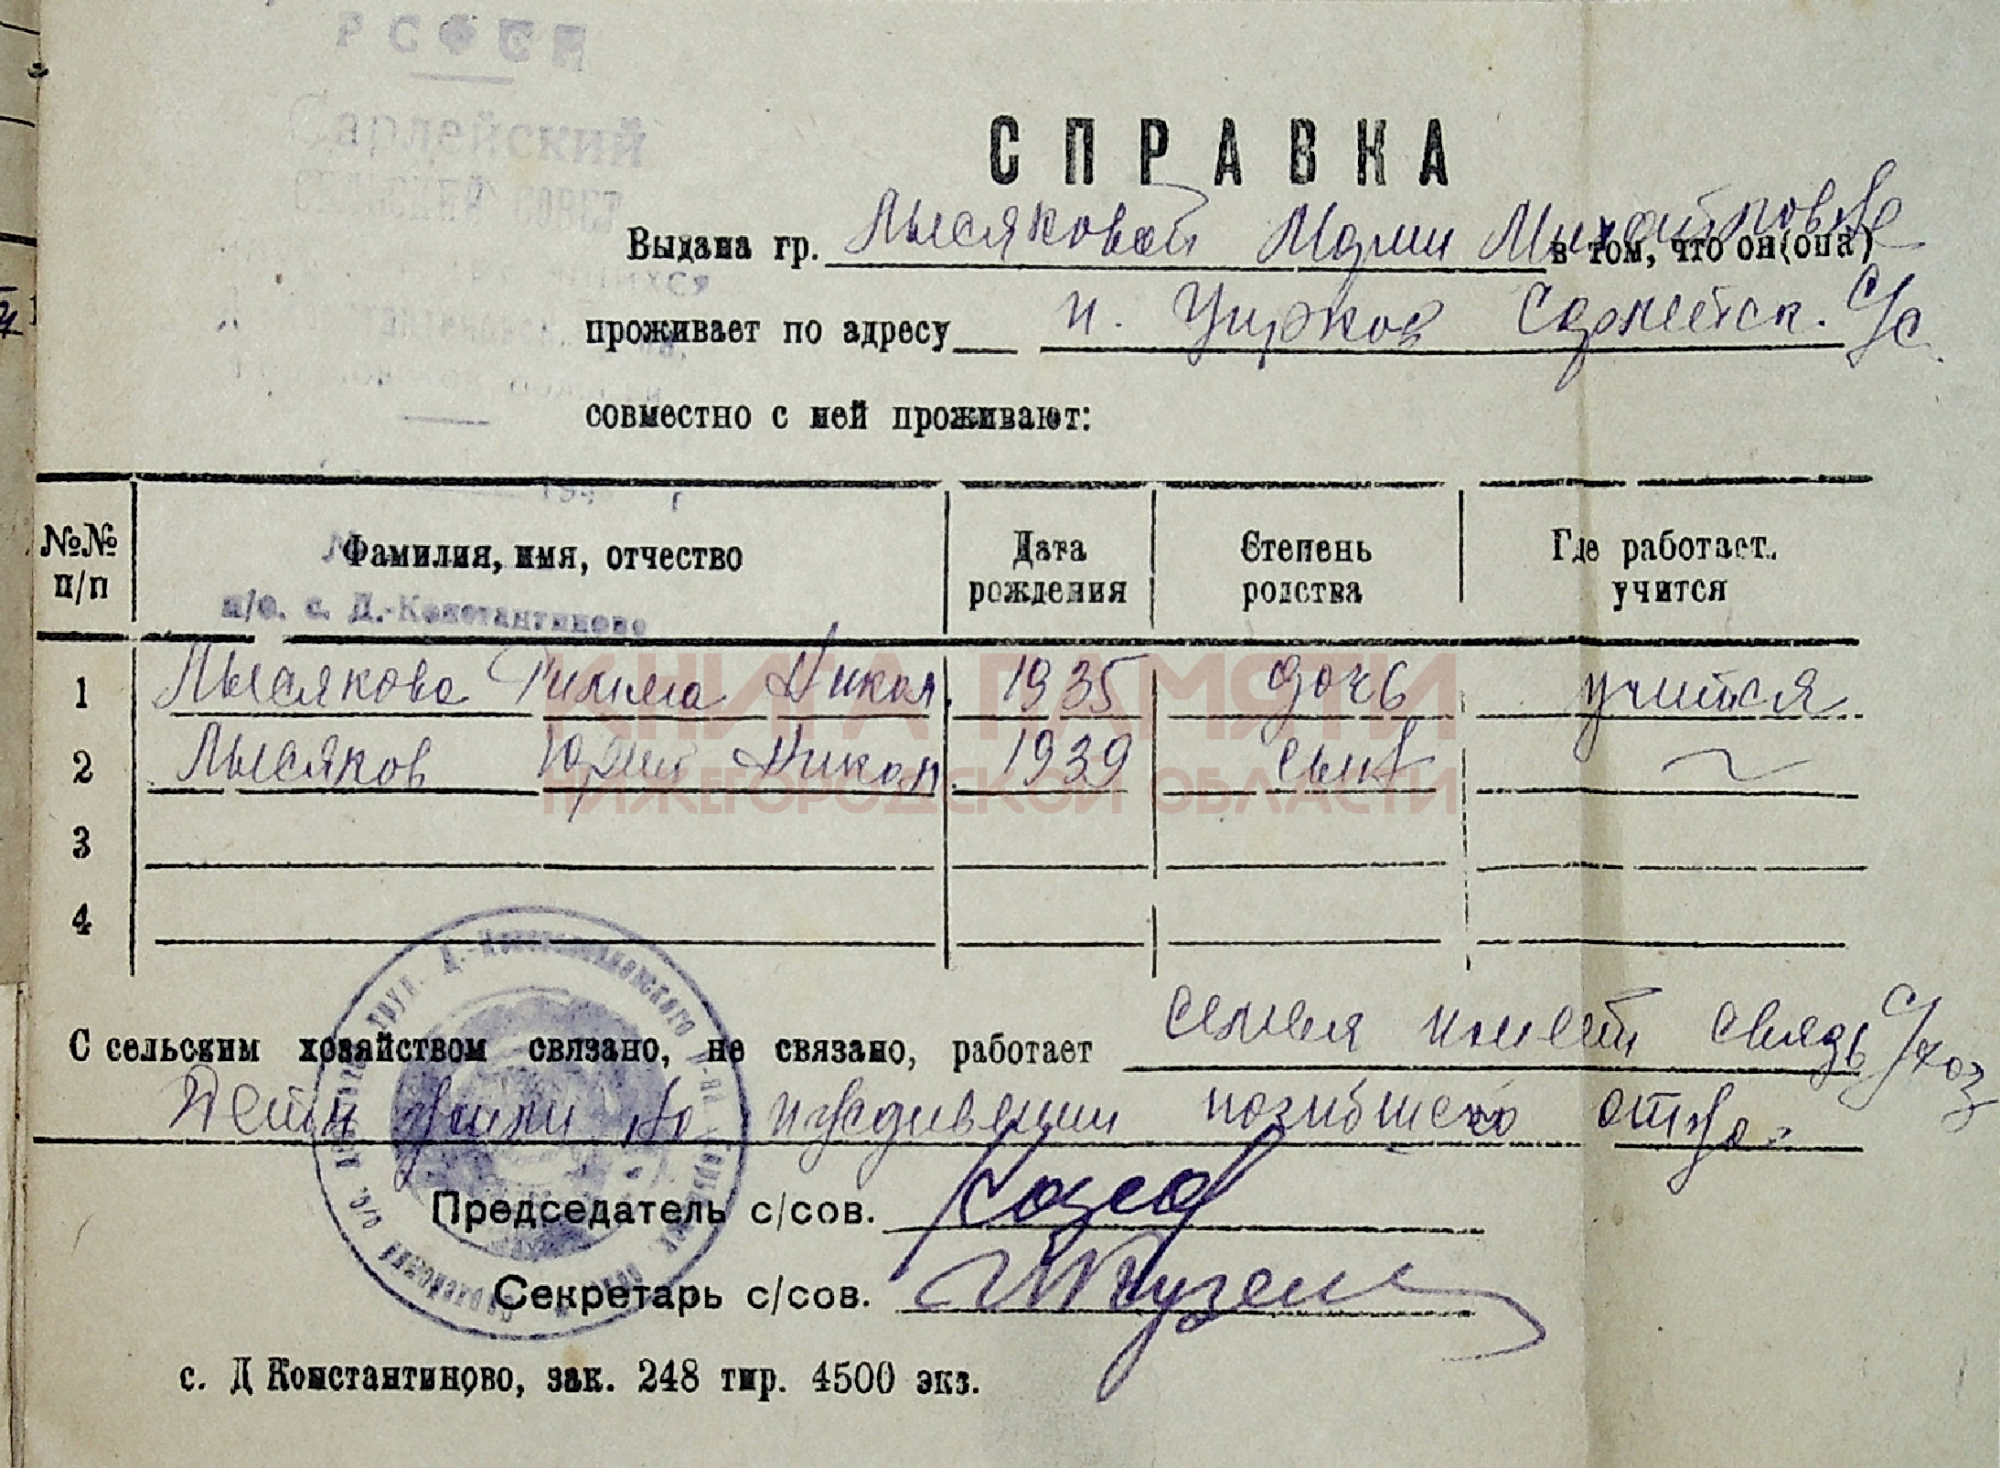 РСФСР
Сарлейский
СЕЛЬСКИЙ СОВЕТ
п/о. с. Д.-Константиново
СПРАВКА
Выдана гр. Лысяковой Марии Михайловне в том, что он(она)
проживает по адресу п. Сарлейск. с/с.
совместно с ней проживают:
№№ п/п Фамилия, имя, отчество Дата рождения Степень родства Где работает, учится
1 Лысякова Римма Никол. 1935 дочь учится
2 Лысяков Юрий Никол. 1939 сын ~
3
4
КНИГА ПАМЯТИ
НИЖЕГОРОДСКОЙ ОБЛАСТИ
С сельским хозяйством связано, не связано, работает семья имеет связь с/хоз
Дети были на иждивении погибшего отца.
Председатель с/сов.
Секретарь с/сов.
с. Д Константиново, зак. 248 тир. 4500 экз.